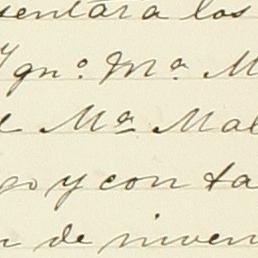 sentara los
Ygn.º M.ª M
l M.ª Mal
go y con ta
n de inven